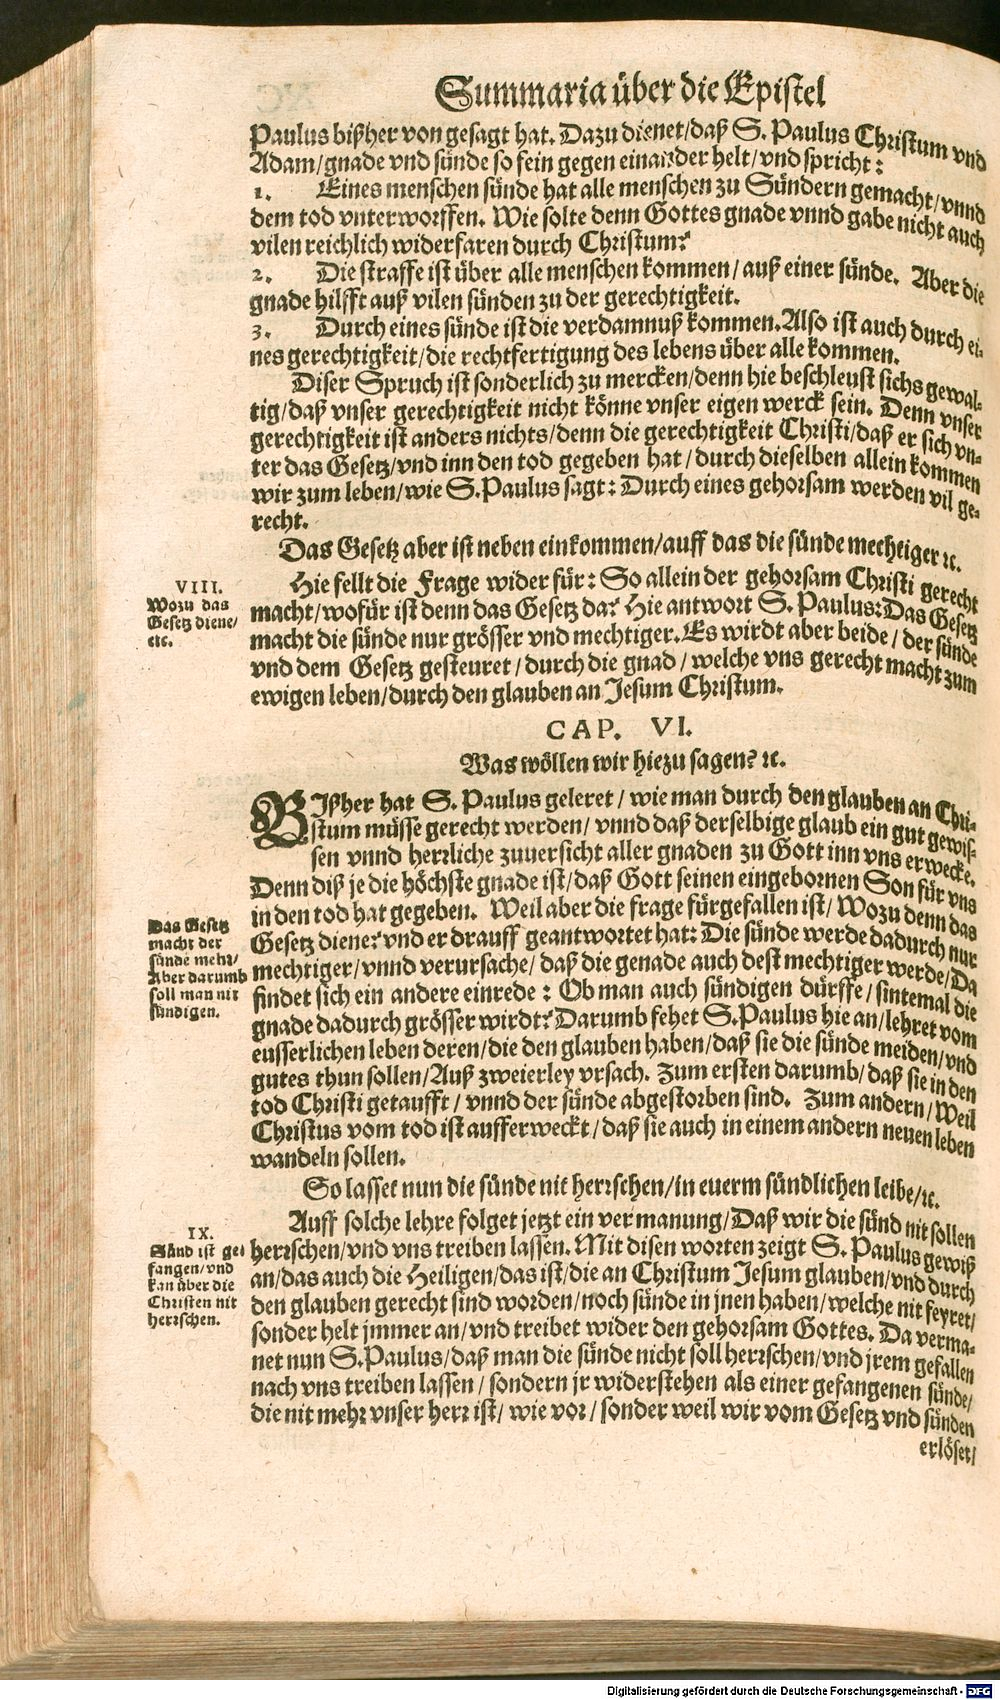 Summaria über die Epistel
Paulus bißher von gesagt hat. Dazu dienet/daß S. Paulus Christum vnd
Adam/gnade vnd sünde so fein gegen einander helt/vnd spricht:
1. Eines menschen sünde hat alle menschen zu Sündern gemacht/vnnd
dem tod vnterworffen. Wie solte denn Gottes gnade vnnd gabe nicht auch
vilen reichlich widerfaren durch Christum?
2. Die straffe ist über alle menschen kommen/auß einer sünde. Aber die
gnade hilfft auß vilen sünden zu der gerechtigkeit.
3. Durch eines sünde ist die verdamnuß kommen. Also ist auch durch ei-
nes gerechtigkeit/die rechtfertigung des lebens über alle kommen.
Diser Spruch ist sonderlich zu mercken/denn hie beschleust sichs gewal-
tig/daß vnser gerechtigkeit nicht könne vnser eigen werck sein. Denn vnser
gerechtigkeit ist anders nichts/denn die gerechtigkeit Christi/daß er sich vn-
ter das Gesetz/vnd inn den tod gegeben hat/durch dieselben allein kommen
wir zum leben/wie S. Paulus sagt: Durch eines gehorsam werden vil ge-
recht.
Das Gesetz aber ist neben einkommen/auff das die sünde mechtiger ꝛc.
VIII.
Wozu das
Gesetz diene/
etc.
Hie fellt die Frage wider für: So allein der gehorsam Christi gerecht
macht/wofür ist denn das Gesetz da? Hie antwort S. Paulus: Das Gesetz
macht die sünde nur grösser vnd mechtiger. Es wirdt aber beide/der sünde
vnd dem Gesetz gesteuret/durch die gnad/welche vns gerecht macht zum
ewigen leben/durch den glauben an Jesum Christum.
CAP. VI.
Was wöllen wir hiezu sagen? ꝛc.
BIßher hat S. Paulus geleret/wie man durch den glauben an Chri-
stum müsse gerecht werden/vnnd daß derselbige glaub ein gut gewis-
sen vnnd herzliche zuuersicht aller gnaden zu Gott inn vns erwecke.
Denn diß je die höchste gnade ist/daß Gott seinen eingebornen Son für vns
in den tod hat gegeben. Weil aber die frage fürgefallen ist/Wozu denn das
Das Gesetz
macht der
sünde mehr/
Aber darumb
soll man nit
sündigen.
Gesetz diene? vnd er drauff geantwortet hat: Die sünde werde dadurch nur
mechtiger/vnnd verursache/daß die genade auch dest mechtiger werde/Da
findet sich ein andere einrede: Ob man auch sündigen dürffe/sintemal die
gnade dadurch grösser wirdt? Darumb fehet S. Paulus hie an/lehret vom
eusserlichen leben deren/die den glauben haben/daß sie die sünde meiden/vnd
gutes thun sollen/Auß zweierley vrsach. Zum ersten darumb/daß sie in den
tod Christi getaufft/vnnd der sünde abgestorben sind. Zum andern/Weil
Christus vom tod ist aufferweckt/daß sie auch in einem andern neuen leben
wandeln sollen.
So lasset nun die sünde nit herrschen/in euerm sündlichen leibe/ꝛc.
Auff solche lehre folget jetzt ein vermanung/Daß wir die sünd nit sollen
IX.
Sünd ist ge-
fangen/vnd
kan über die
Christen nit
herrschen.
herrschen/vnd vns treiben lassen. Mit disen worten zeigt S. Paulus gewiß
an/das auch die Heiligen/das ist/die an Christum Jesum glauben/vnd durch
den glauben gerecht sind worden/noch sünde in jnen haben/welche nit feyret/
sonder helt jmmer an/vnd treibet wider den gehorsam Gottes. Da verma-
net nun S. Paulus/daß man die sünde nicht soll herrschen/vnd jrem gefallen
nach vns treiben lassen/sondern jr widerstehen als einer gefangenen sünde/
die nit mehr vnser herr ist/wie vor/sonder weil wir vom Gesetz vnd sünden
erlöset/
Digitalisierung gefördert durch die Deutsche Forschungsgemeinschaft - DFG